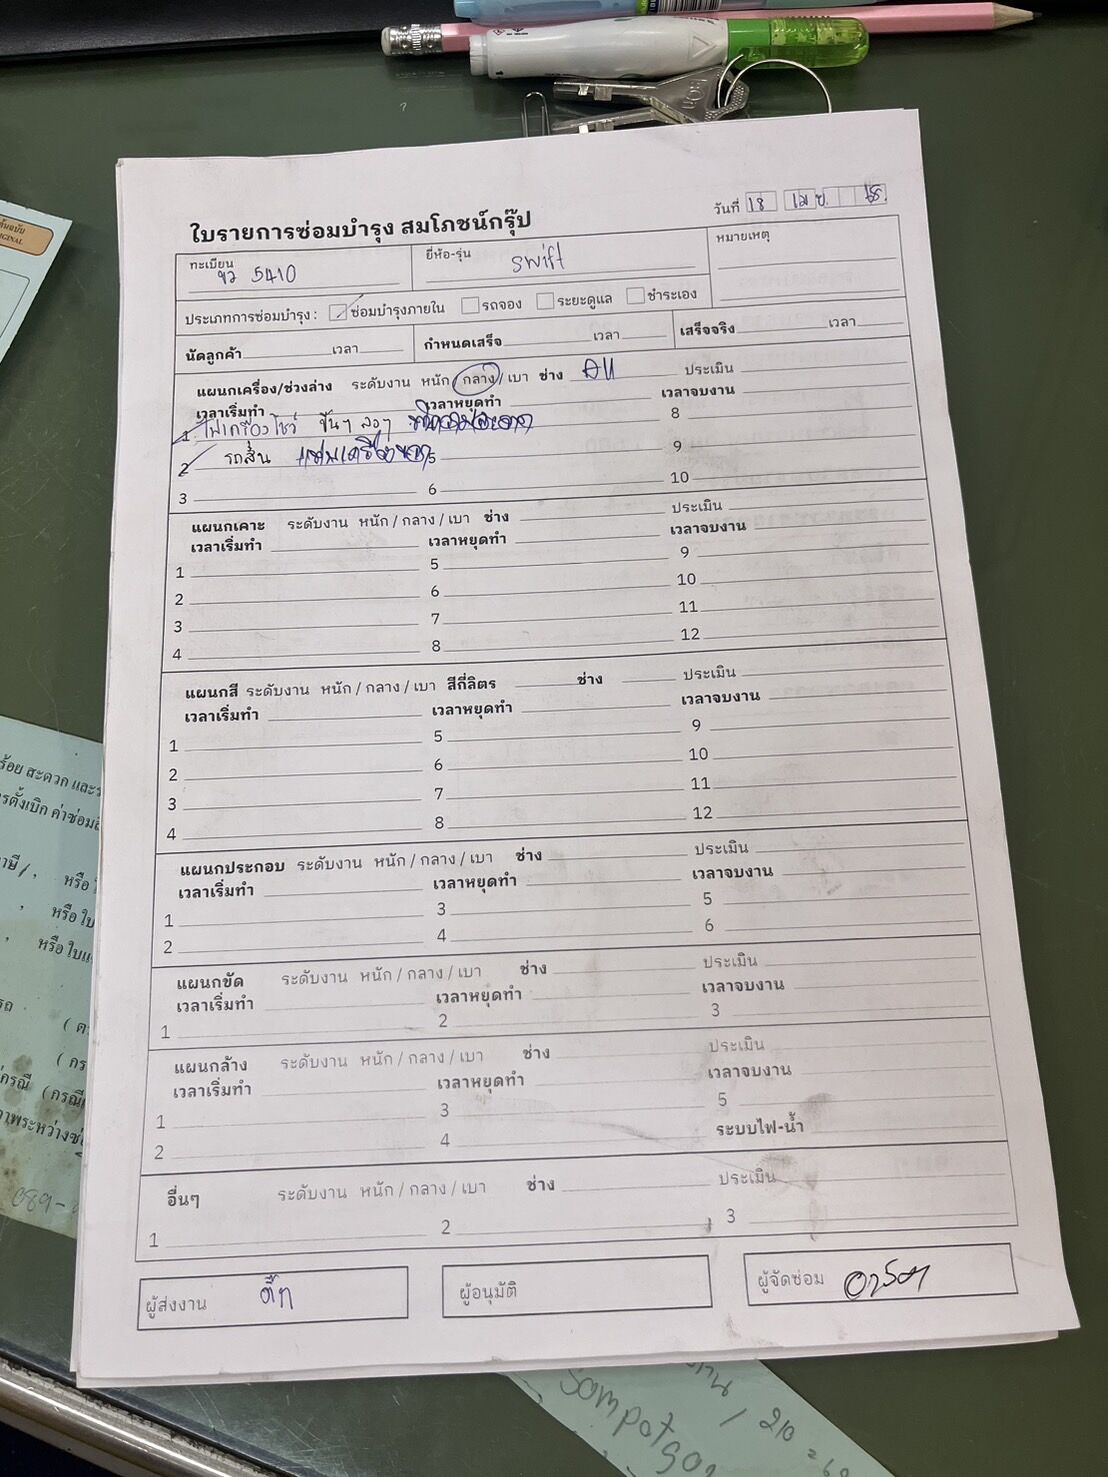 ใบรายการซ่อมบำรุง สมโภชน์กรุ๊ป
วันที่ 18 เม.ย. 68.
ทะเบียน ขว 5410 ยี่ห้อ-รุ่น swift หมายเหตุ
ประเภทการซ่อมบำรุง : ซ่อมบำรุงภายใน รถจอง ระยะดูแล ชำระเอง
นัดลูกค้า เวลา กำหนดเสร็จ เวลา เสร็จจริง เวลา
แผนกเครื่อง/ช่วงล่าง ระดับงาน หนัก / กลาง / เบา ช่าง ประเมิน
เวลาเริ่มทำ เวลาหยุดทำ เวลาจบงาน
1 ไฟเครื่องโชว์ ขึ้นๆ ลงๆ 8
2 รถสั่น 5 9
3 6 10
แผนกเคาะ ระดับงาน หนัก / กลาง / เบา ช่าง ประเมิน
เวลาเริ่มทำ เวลาหยุดทำ เวลาจบงาน
1 5 9
2 6 10
3 7 11
4 8 12
แผนกสี ระดับงาน หนัก / กลาง / เบา สีกี่ลิตร ช่าง ประเมิน
เวลาเริ่มทำ เวลาหยุดทำ เวลาจบงาน
1 5 9
2 6 10
3 7 11
4 8 12
แผนกประกอบ ระดับงาน หนัก / กลาง / เบา ช่าง ประเมิน
เวลาเริ่มทำ เวลาหยุดทำ เวลาจบงาน
1 3 5
2 4 6
แผนกขัด ระดับงาน หนัก / กลาง / เบา ช่าง ประเมิน
เวลาเริ่มทำ เวลาหยุดทำ เวลาจบงาน
1 2 3
แผนกล้าง ระดับงาน หนัก / กลาง / เบา ช่าง ประเมิน
เวลาเริ่มทำ เวลาหยุดทำ เวลาจบงาน
1 3 5
2 4 ระบบไฟ-น้ำ
อื่นๆ ระดับงาน หนัก / กลาง / เบา ช่าง ประเมิน
1 2 3
ผู้ส่งงาน ผู้อนุมัติ ผู้จัดซ่อม
ร้อย สะดวก และ
รตั้งเบิก ค่าซ่อม
หรือ
หรือ ใบ
หรือ ใบ
089-
/ 210